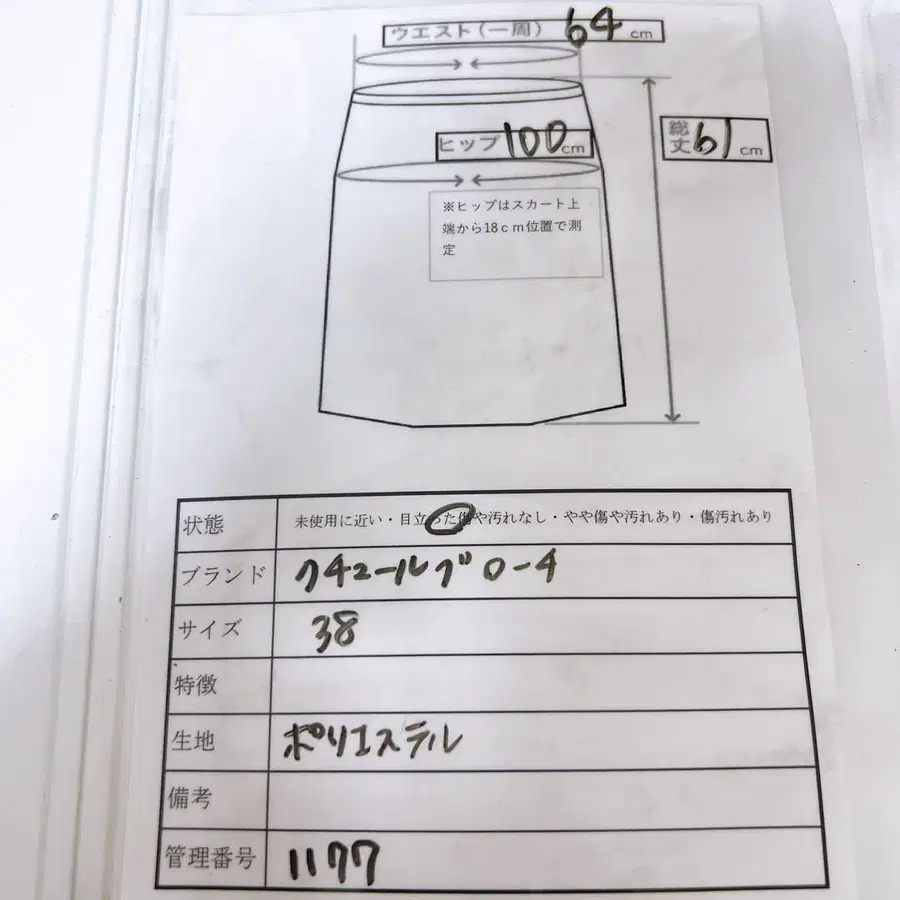 ウエスト(一周) 64 cm
ヒップ 100 cm
総丈 61 cm
※ヒップはスカート上
端から18cm位置で測
定
状態 未使用に近い・目立った傷や汚れなし・やや傷や汚れあり・傷汚れあり
ブランド クチュールブローチ
サイズ 38
特徴
生地 ポリエステル
備考
管理番号 1177